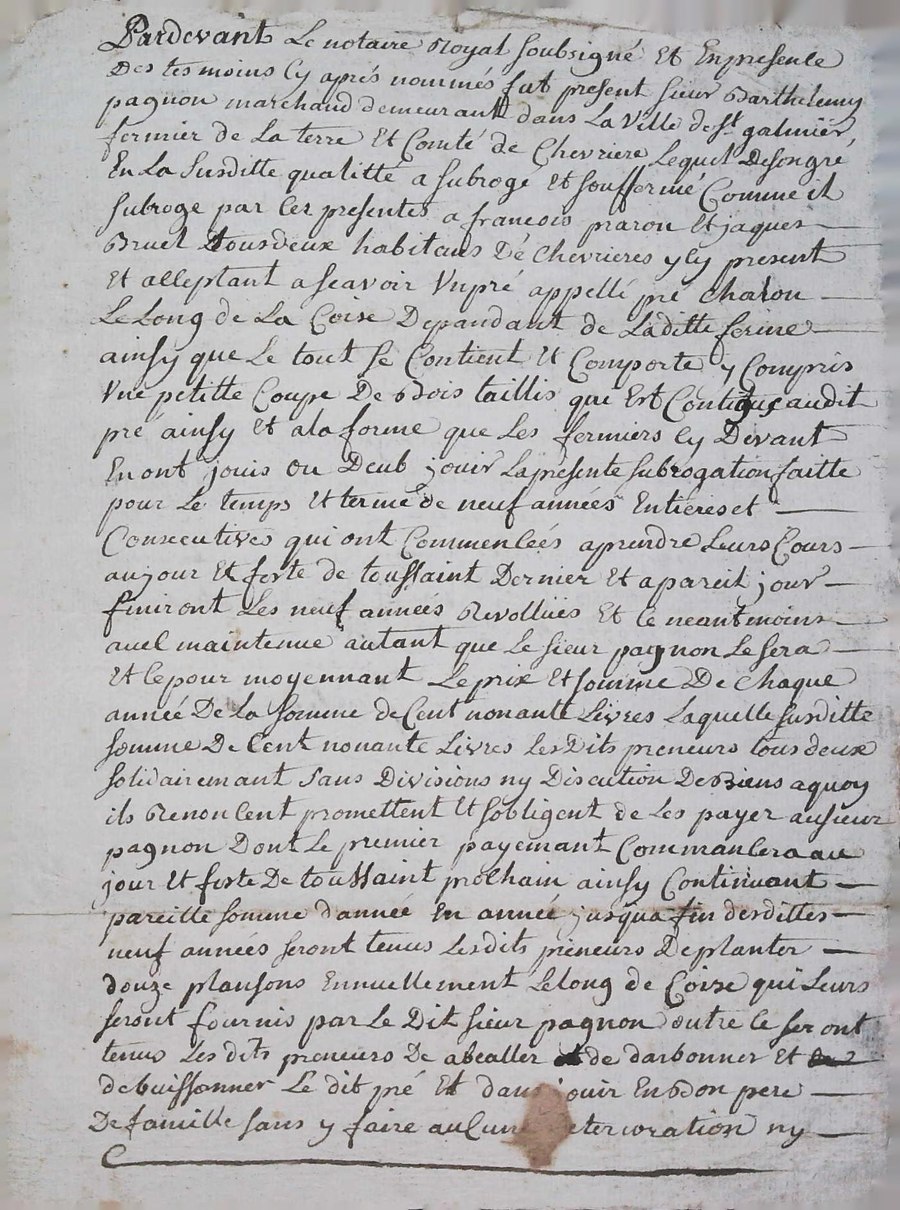 Pardevant Le notaire Royal soubsigné Et En presence
Des tesmoins Cy aprés nommés fut present sieur Barthelemy
pagnon marchand demeurant dans La Ville de St galmier
fermier de La terre Et Comté de Chevriere Lequel De son gré
En La Susditte qualitté a subrogé Et souffermé Comme il
subroge par Ces presentes a francois praron Et jaques
Bruel tous deux habitans De Chevrieres y Cy present
Et acceptant a scavoir Vn pré appellé pré Chalon
Le Long de La Coise Dépandant de Laditte ferme
ainsy que Le tout se Contient Et Comporte y Compris
Vne petitte Coupe De Bois taillis qui Est Contiguc audit
pré ainsy Et a la forme que Les fermiers Cy Devant
En ont jouis ou Deub jouir La présente subrogation faitte
pour Le temps Et terme de neuf années Entieres et
Consecutives qui ont Commencées a prendre Leurs Cours
au jour Et feste de toussaint Dernier Et a pareil jour
finiront Les neuf années Revollues Et Ce neantmoins
avec maintenue autant que Le sieur pagnon Le sera
Et Ce pour moyennant Le prix Et somme De Chaque
année De La somme de Cent nonante Livres Laquelle susditte
somme De Cent nonante Livres Les Dits preneurs tous deux
solidairemant sans Divisions ny Discution De Biens a quoy
ils Renoncent promettent Et sobligent de Les payer au sieur
pagnon Dont Le premier payemant Commancera au
jour Et feste De toussaint prochain ainsy Continuant
pareille somme d'année En année jusqua fin desdittes
neuf années seront tenus Lesdits preneurs De planter
douze plansons Ennuellement Le long de Coise qui Leurs
seront fournis par Le Dit sieur pagnon outre Ce seront
tenus Les dits preneurs De abealler de darbonner Et
debuissonner Le dit pré Et dans jouir En Bon pere
De famille sans y faire aucune deterioration ny